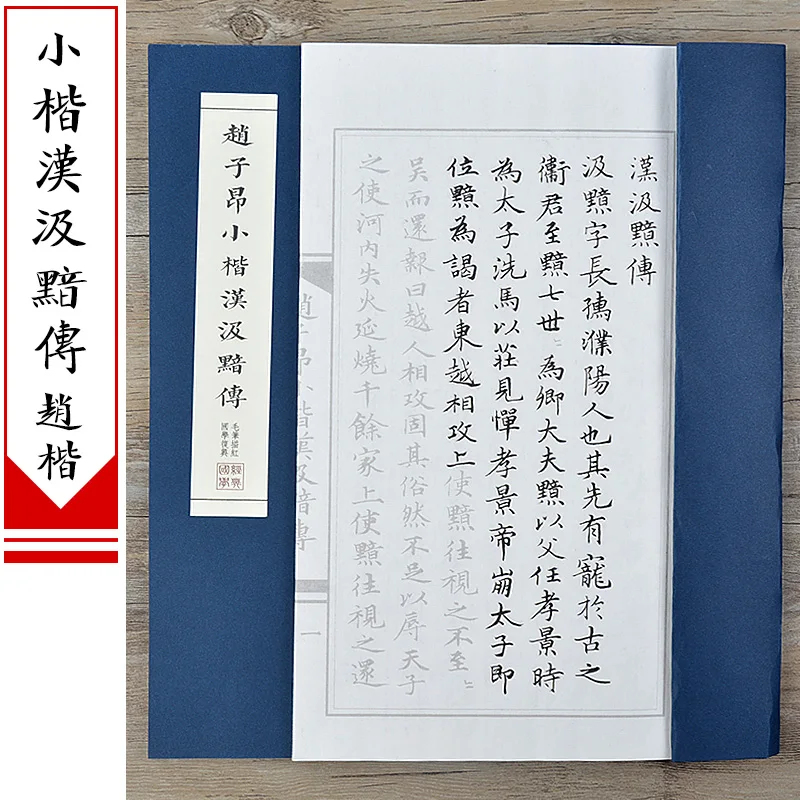 小楷漢汲黯傳趙楷
趙子昂小楷漢汲黯傳
毛筆描紅
國學復興
經典
國學
漢汲黯傳
汲黯字長孺濮陽人也其先有寵於古之
衞君至黯七世〻為卿大夫黯以父任孝景時
為太子洗馬以莊見憚孝景帝崩太子即
位黯為謁者東越相攻上使黯往視之不至〻
吳而還報曰越人相攻固其俗然不足以辱天子
之使河內失火延燒千餘家上使黯往視之還
趙子昂小楷漢汲黯傳
一